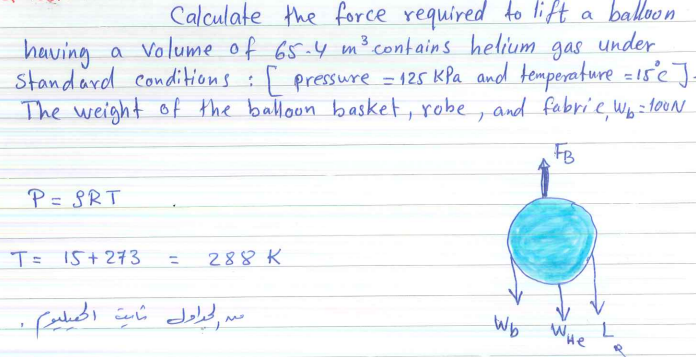 Calculate the force required to lift a balloon
having a volume of 65.4 m³ contains helium gas under
standard conditions : [ pressure = 125 KPa and temperature = 15°C ].
The weight of the balloon basket, robe, and fabric, Wb = 100N
FB
P = ρRT
T = 15 + 273 = 288 K
من الجداول ثابت الهيليوم .
Wb WHe L